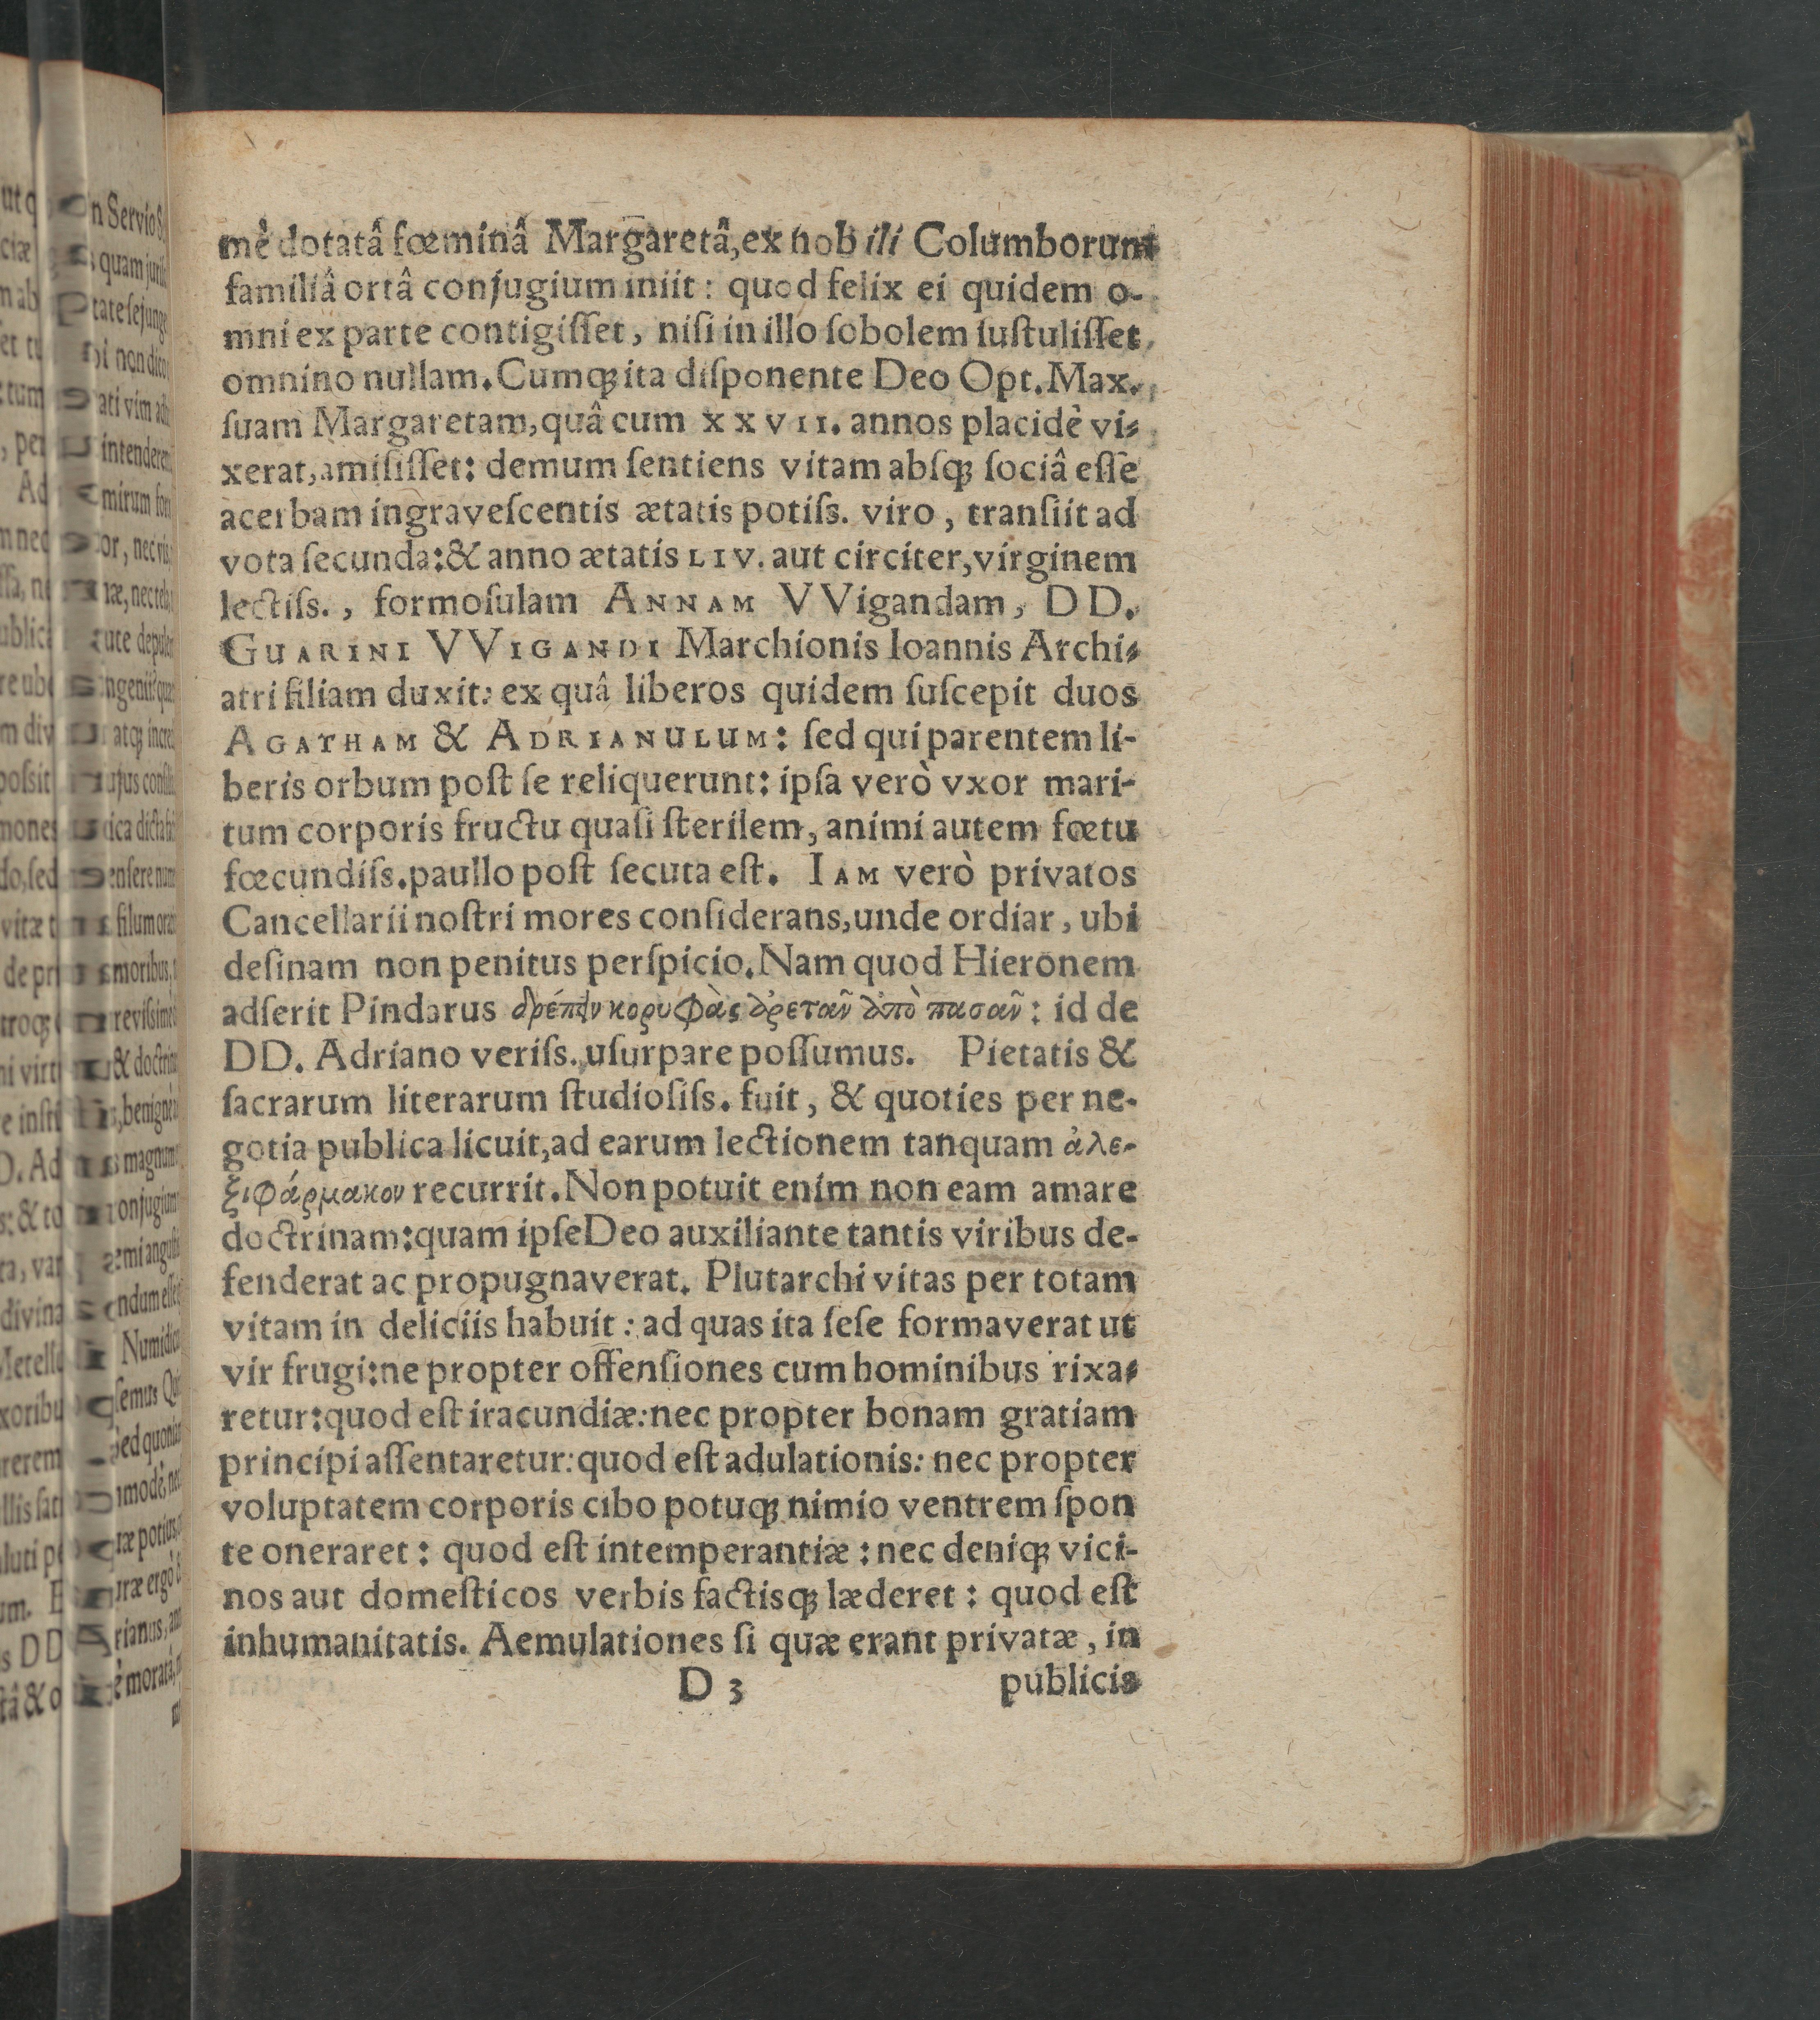 mè dotatâ fœminâ Margaretâ, ex nobili Columborum
familiâ ortâ conjugium iniit: quod felix ei quidem o-
mni ex parte contigiſſet, niſi in illo ſobolem ſuſtuliſſet
omnino nullam. Cumqꝫ ita diſponente Deo Opt. Max.
ſuam Margaretam, quâ cum XXVII. annos placidè vi-
xerat, amiſiſſet: demum ſentiens vitam abſqꝫ ſociâ eſſe
acerbam ingraveſcentis ætatis potiſs. viro, tranſiit ad
vota ſecunda: & anno ætatis LIV. aut circiter, virginem
lectiſs., formoſulam ANNAM VVigandam, DD.
GUARINI VVIGANDI Marchionis Ioannis Archi-
atri filiam duxit: ex quâ liberos quidem ſuſcepit duos
AGATHAM & ADRIANULUM: ſed qui parentem li-
beris orbum poſt ſe reliquerunt: ipſa verò vxor mari-
tum corporis fructu quaſi ſterilem, animi autem fœtu
fœcundiſs. paullo poſt ſecuta eſt. IAM verò privatos
Cancellarii noſtri mores conſiderans, unde ordiar, ubi
deſinam non penitus perſpicio. Nam quod Hieronem
adſerit Pindarus δρέπειν κορυφὰς ἀρετᾶν ἀπὸ πασᾶν: id de
DD. Adriano veriſs. uſurpare poſſumus. Pietatis &
ſacrarum literarum ſtudioſiſs. fuit, & quoties per ne-
gotia publica licuit, ad earum lectionem tanquam ἀλε-
ξιφάρμακον recurrit. Non potuit enim non eam amare
doctrinam: quam ipſe Deo auxiliante tantis viribus de-
fenderat ac propugnaverat. Plutarchi vitas per totam
vitam in deliciis habuit: ad quas ita ſeſe formaverat ut
vir frugi: ne propter offenſiones cum hominibus rixa-
retur: quod eſt iracundiæ: nec propter bonam gratiam
principi aſſentaretur: quod eſt adulationis: nec propter
voluptatem corporis cibo potuqꝫ nimio ventrem ſpon
te oneraret: quod eſt intemperantiæ: nec deniqꝫ vici-
nos aut domeſticos verbis factisqꝫ læderet: quod eſt
inhumanitatis. Aemulationes ſi quæ erant privatæ, in
D 3 publicis